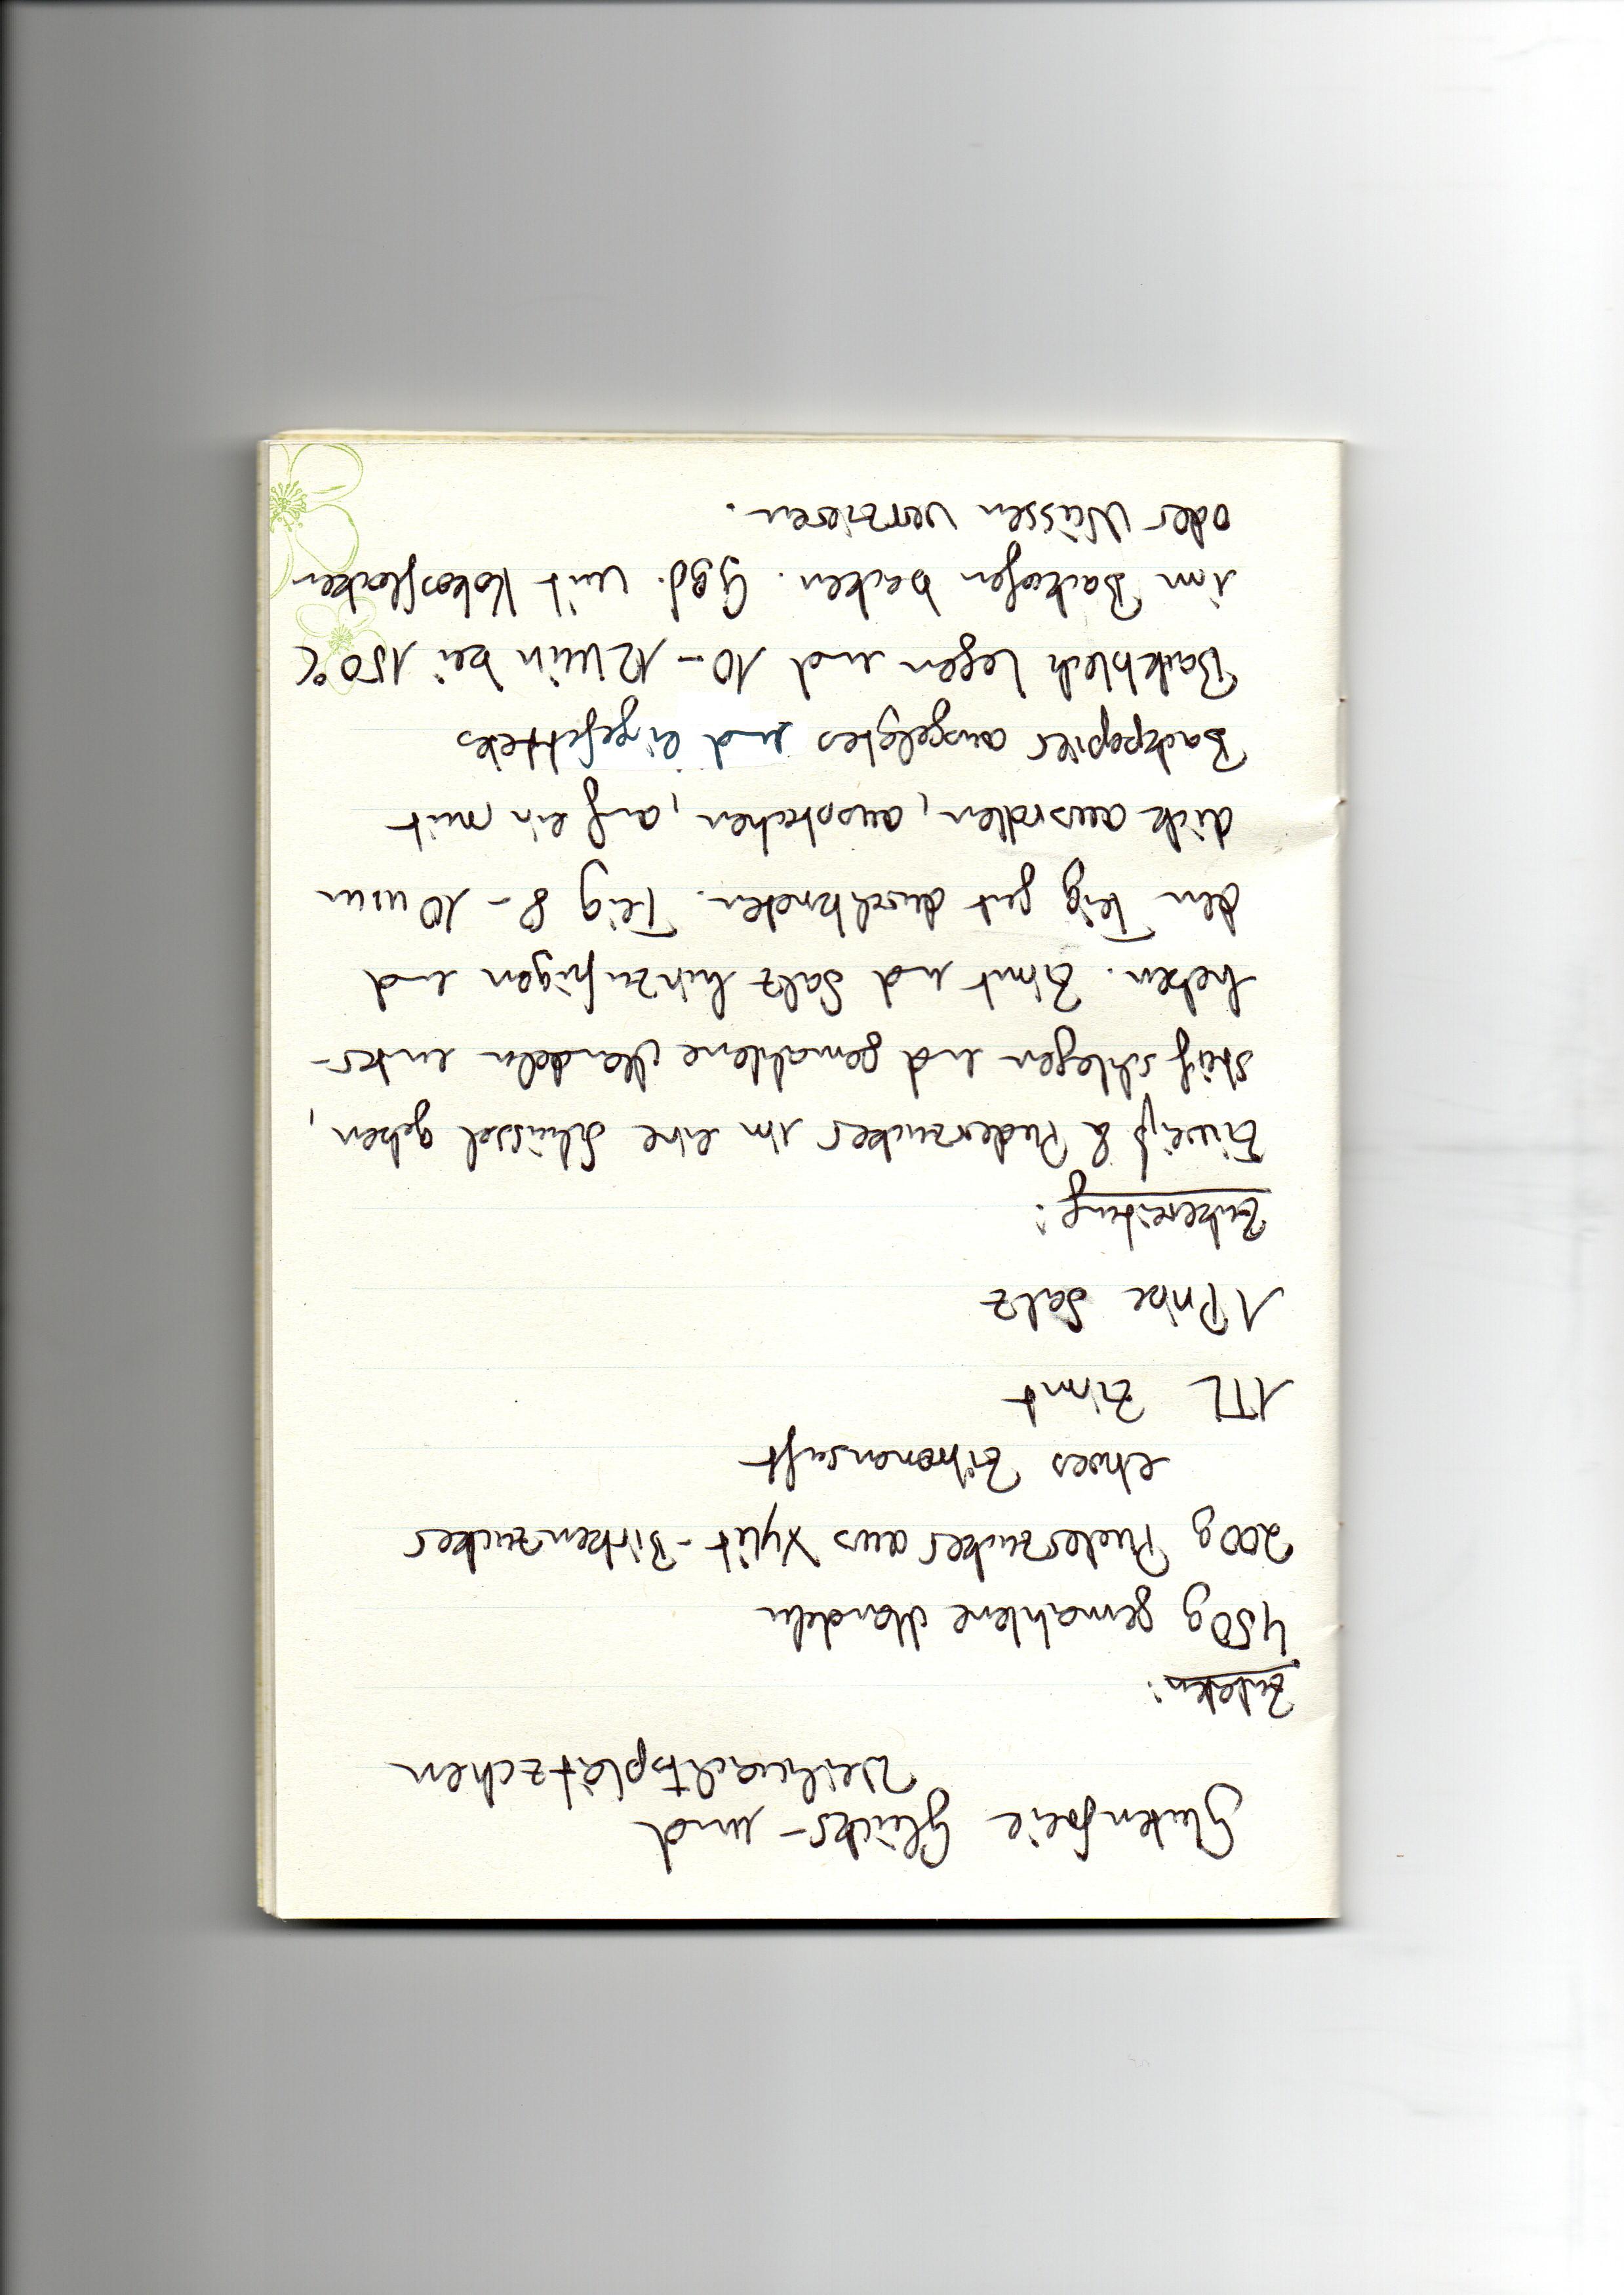 Glutenfreie Glücks- und
Weihnachtsplätzchen
Zutaten:
450g gemahlene Mandeln
200g Puderzucker aus Xylit-Birkenzucker
etwas Zitronensaft
1TL Zimt
1 Prise Salz
Zubereitung:
Eiweiß & Puderzucker in eine Schüssel geben,
steif schlagen und gemahlene Mandeln unter-
heben. Zimt und Salz hinzufügen und
den Teig gut durchkneten. Teig 8-10 mm
dick ausrollen, ausstechen, auf ein mit
Backpapier ausgelegtes und eingefettetes
Backblech legen und 10-12 Min bei 150°C
im Backofen backen. Ggf. mit Kokosflocken
oder Nüssen verzieren.